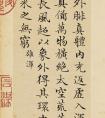 外腓真體內充返虛入
具備萬物橫絕太空荒
長風超以象外得其環
來之無窮 雄渾